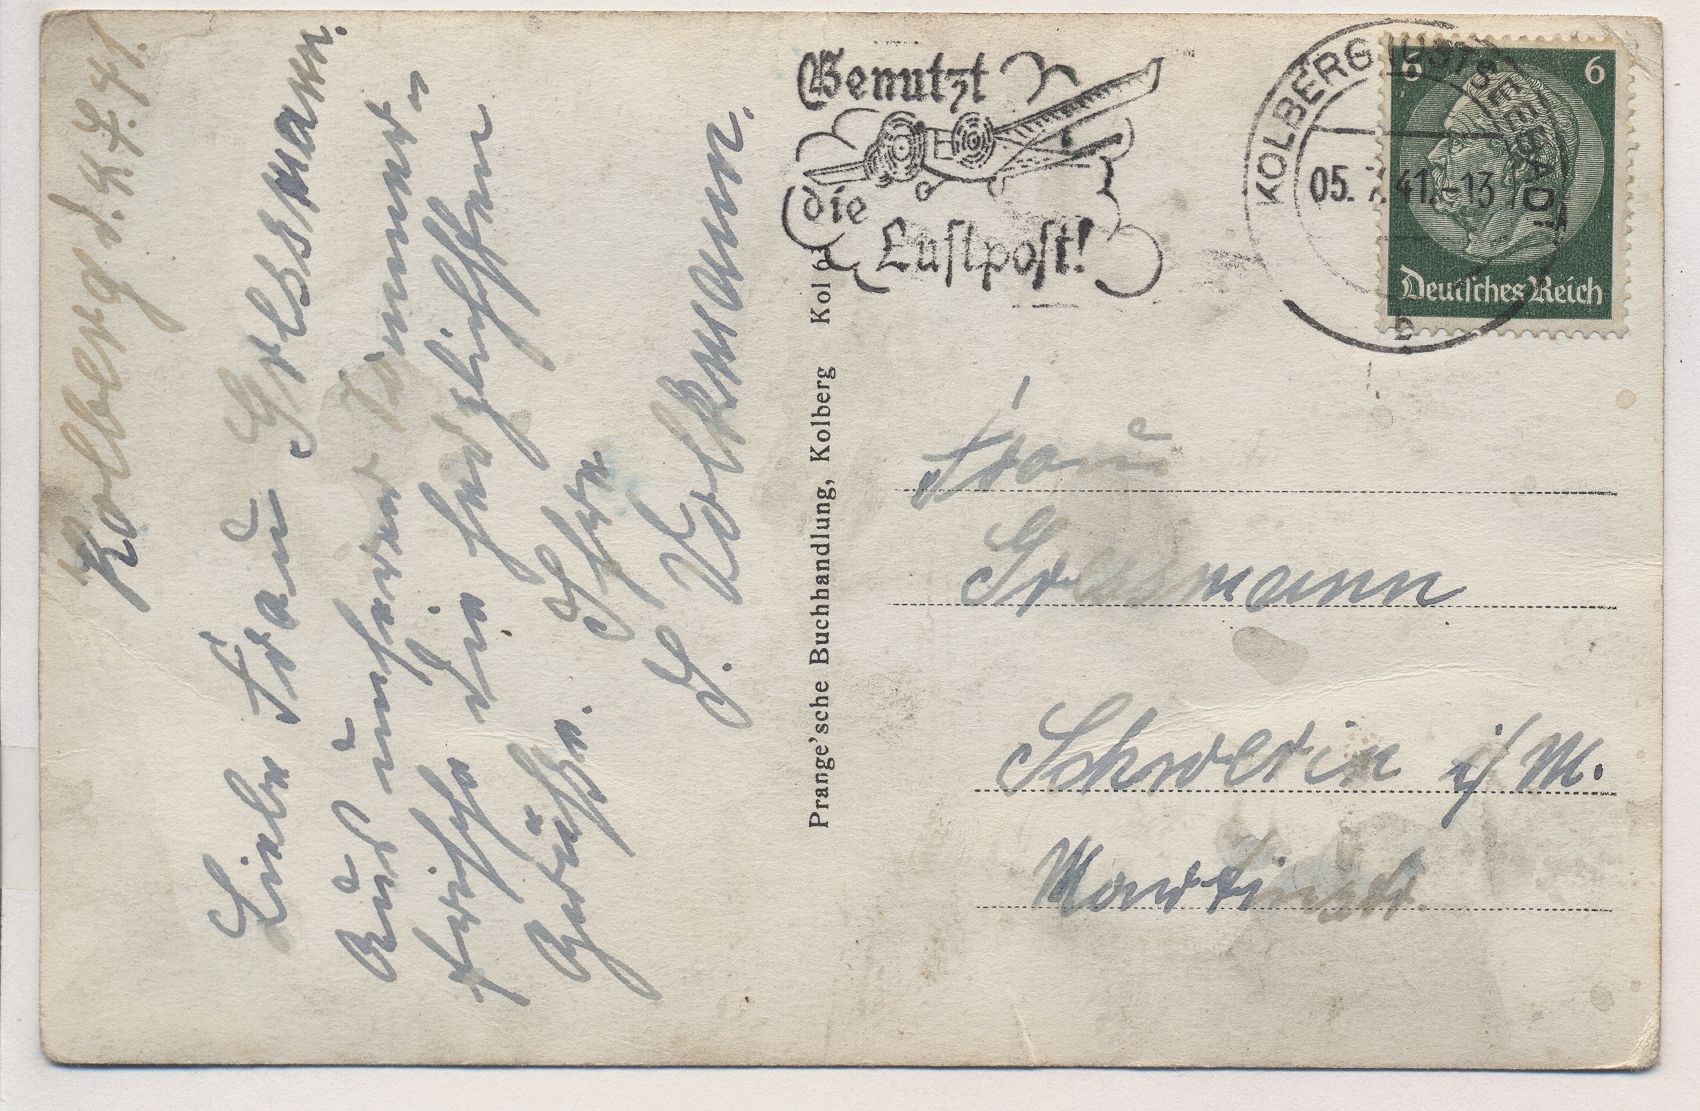 Kolberg d. 4.7.41.
Liebe Frau Gressmann.
Aus unserer Sommer-
frische die herzlichsten
Grüße. Ihre
J. Volkmann.
Prange'sche Buchhandlung, Kolberg Kol
Benutzt
die
Luftpost!
KOLBERG OSTSEEBAD
05.7.41.-13
b
6 6
Deutsches Reich
Frau
Gressmann
Schwerin i/M.